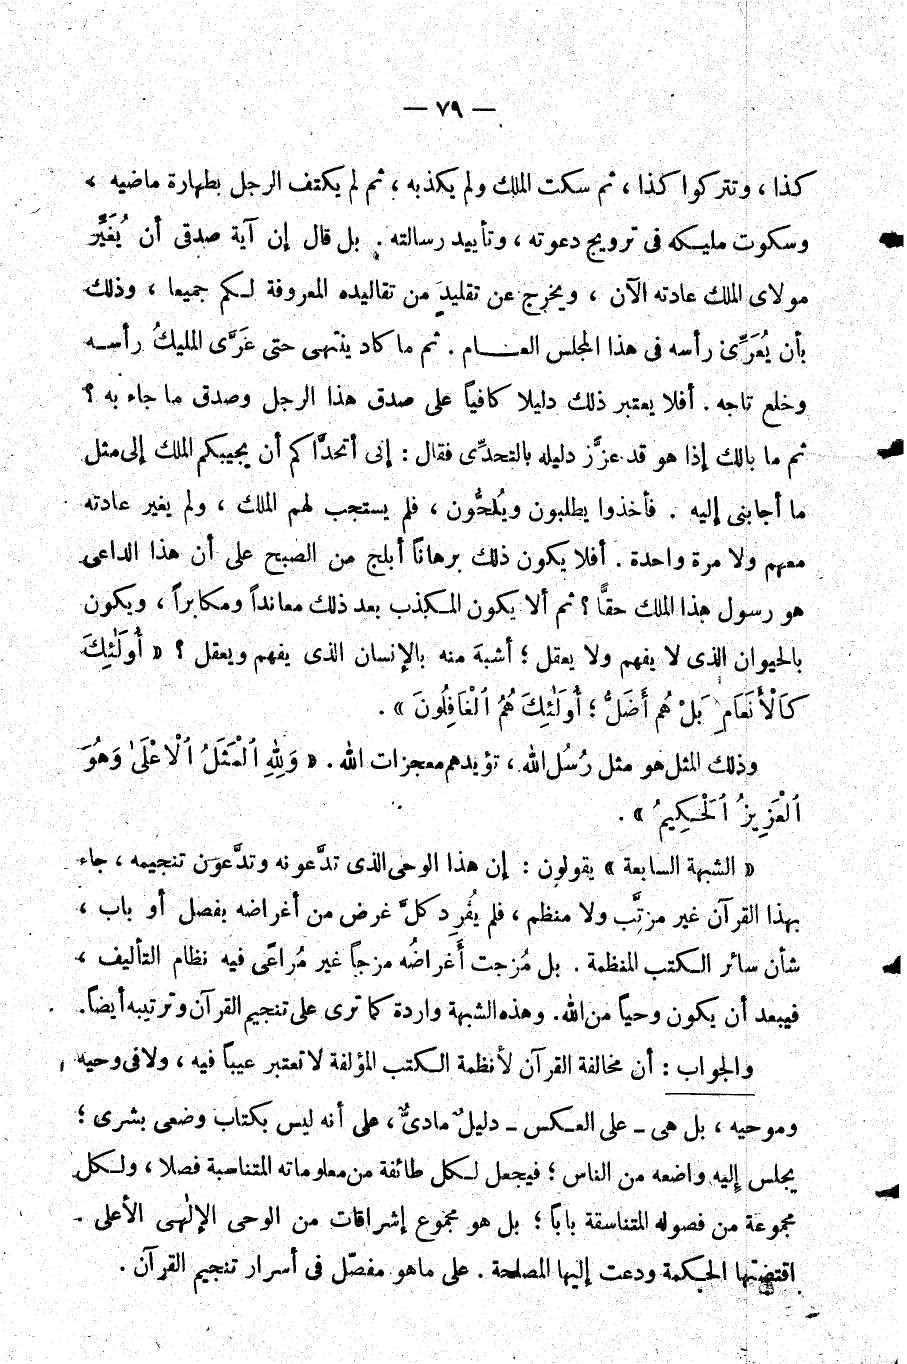 — ٧٩ —
كذا ، وتتركوا كذا ، ثم سكت الملك ولم يكذبه ، ثم لم يكتف الرجل بطهارة ماضيه ،
وسكوت مليكه فى ترويج دعوته ، وتأييد رسالته . بل قال إن آية صدقى أن يُغَيِّر
مولاى الملك عادته الآن ، ويخرج عن تقليدٍ من تقاليده المعروفة لكم جميعا ، وذلك
بأن يُعَرِّىَ رأسه فى هذا المجلس العام . ثم ما كاد ينتهى حتى عَرَّى المليكُ رأسه
وخلع تاجه . أفلا يعتبر ذلك دليلا كافياً على صدق هذا الرجل وصدق ما جاء به ؟
ثم ما بالك إذا هو قد عزَّز دليله بالتحدِّى فقال : إنى أتحدَّاكم أن يجيبكم الملك إلى مثل
ما أجابنى إليه . فأخذوا يطلبون ويُلحُّون ، فلم يستجب لهم الملك ، ولم يغير عادته
معهم ولا مرة واحدة . أفلا يكون ذلك برهاناً أبلج من الصبح على أن هذا الداعى
هو رسول هذا الملك حقًّا ؟ ثم ألا يكون المكذب بعد ذلك معانداً ومكابراً ، ويكون
بالحيوان الذى لا يفهم ولا يعقل ؛ أشبهَ منه بالإنسان الذى يفهم ويعقل ؟ « أُولَٰئِكَ
كَٱلْأَنْعَامِ بَلْ هُمْ أَضَلُّ ؛ أُولَٰئِكَ هُمُ ٱلْغَافِلُونَ » .
وذلك المثل هو مثل رُسُل الله ، تؤيدهم معجزات الله . « وَلِلّٰهِ ٱلْمَثَلُ ٱلْأَعْلَىٰ وَهُوَ
ٱلْعَزِيزُ ٱلْحَكِيمُ » .
« الشبهة السابعة » يقولون : إن هذا الوحى الذى تدَّعونه وتدَّعون تنجيمه ، جاء
بهذا القرآن غير مرتَّب ولا منظم ، فلم يُفْرِد كلَّ غرض من أغراضه بفصل أو باب ،
شأن سائر الكتب المنظمة . بل مُزجت أَغراضُه مزجاً غير مُراعًى فيه نظام التأليف ،
فيبعد أن يكون وحياً من الله . وهذه الشبهة واردة كما ترى على تنجيم القرآن وترتيبه أيضاً .
والجواب : أن مخالفة القرآن لأنظمة الكتب المؤلفة لا تعتبر عيباً فيه ، ولا فى وحيه
وموحيه ، بل هى - على العكس - دليلٌ مادىٌّ ، على أنه ليس بكتاب وضعى بشرى ؛
يجلس إليه واضعه من الناس ؛ فيجعل لكل طائفة من معلوماته المتناسبة فصلا ، ولكل
مجموعة من فصوله المتناسقة باباً ؛ بل هو مجموع إشراقات من الوحى الإلٰهى الأعلى .
اقتضتها الحكمة ودعت إليها المصلحة . على ما هو مفصّل فى أسرار تنجيم القرآن .